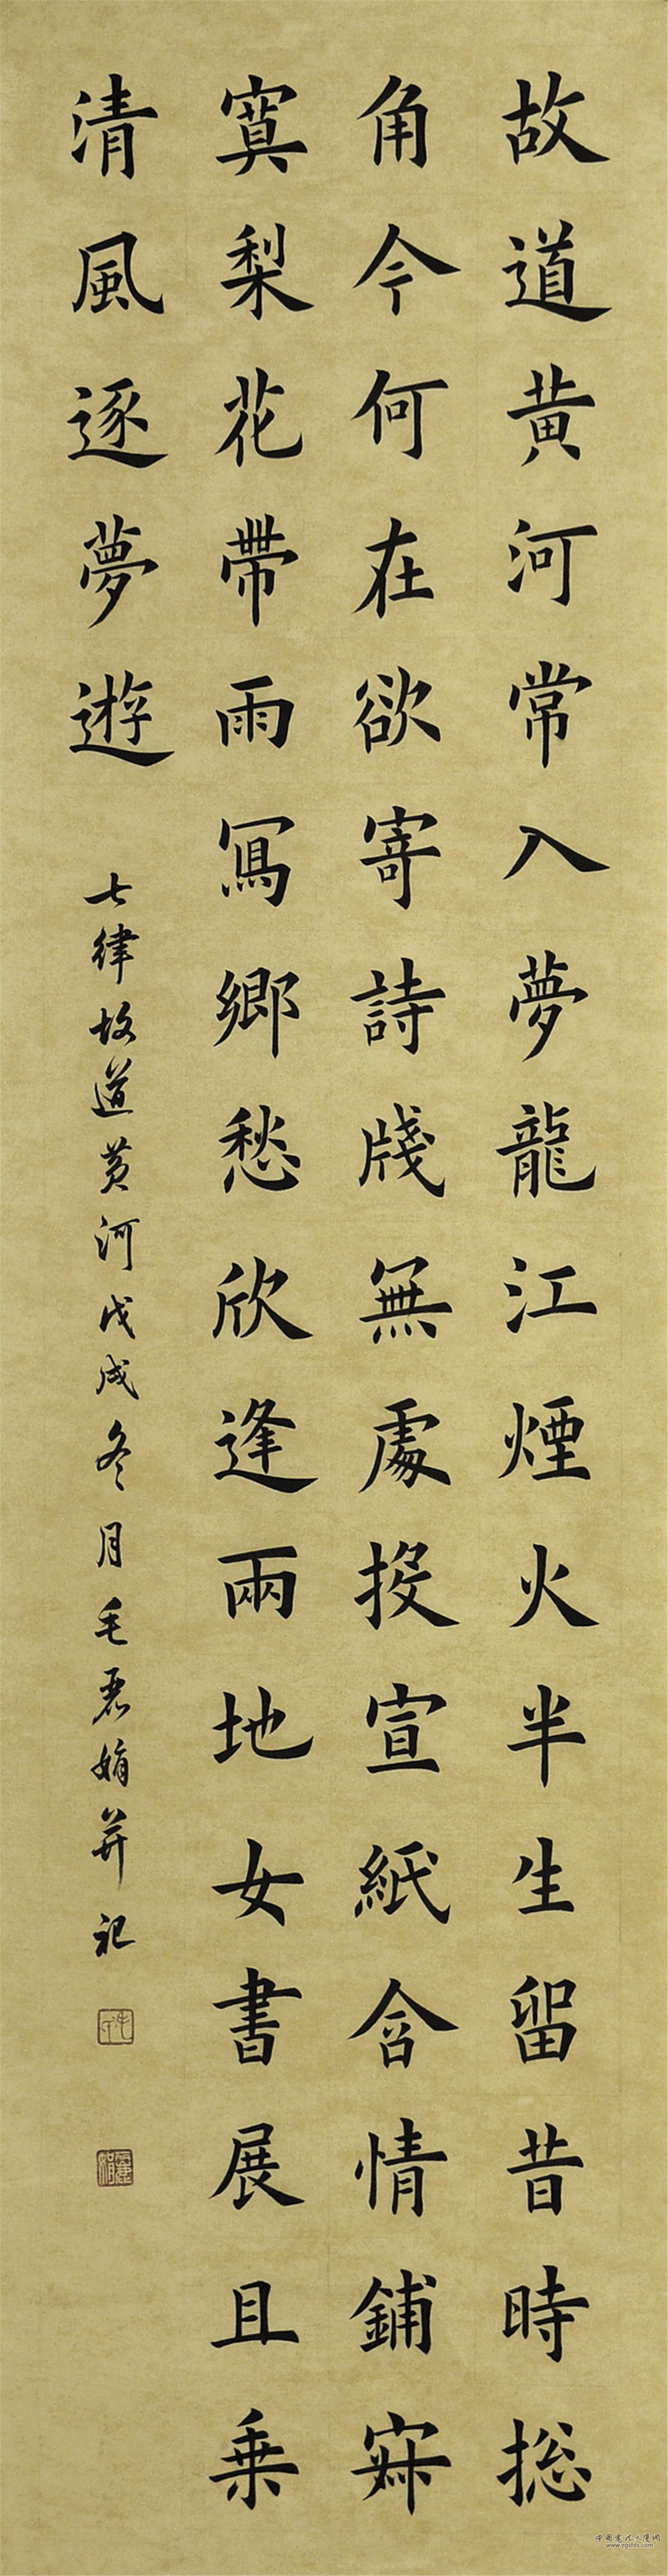 故道黄河常入夢龍江煙火半生留昔時総
角今何在欲寄詩牋無處投宣紙含情鋪寂
寞梨花帶雨寫鄉愁欣逢兩地女書展且乗
清風逐夢遊
七律故道黄河戊戌冬月毛君娟並記
中国书法人漫网
www.zgsfds.com